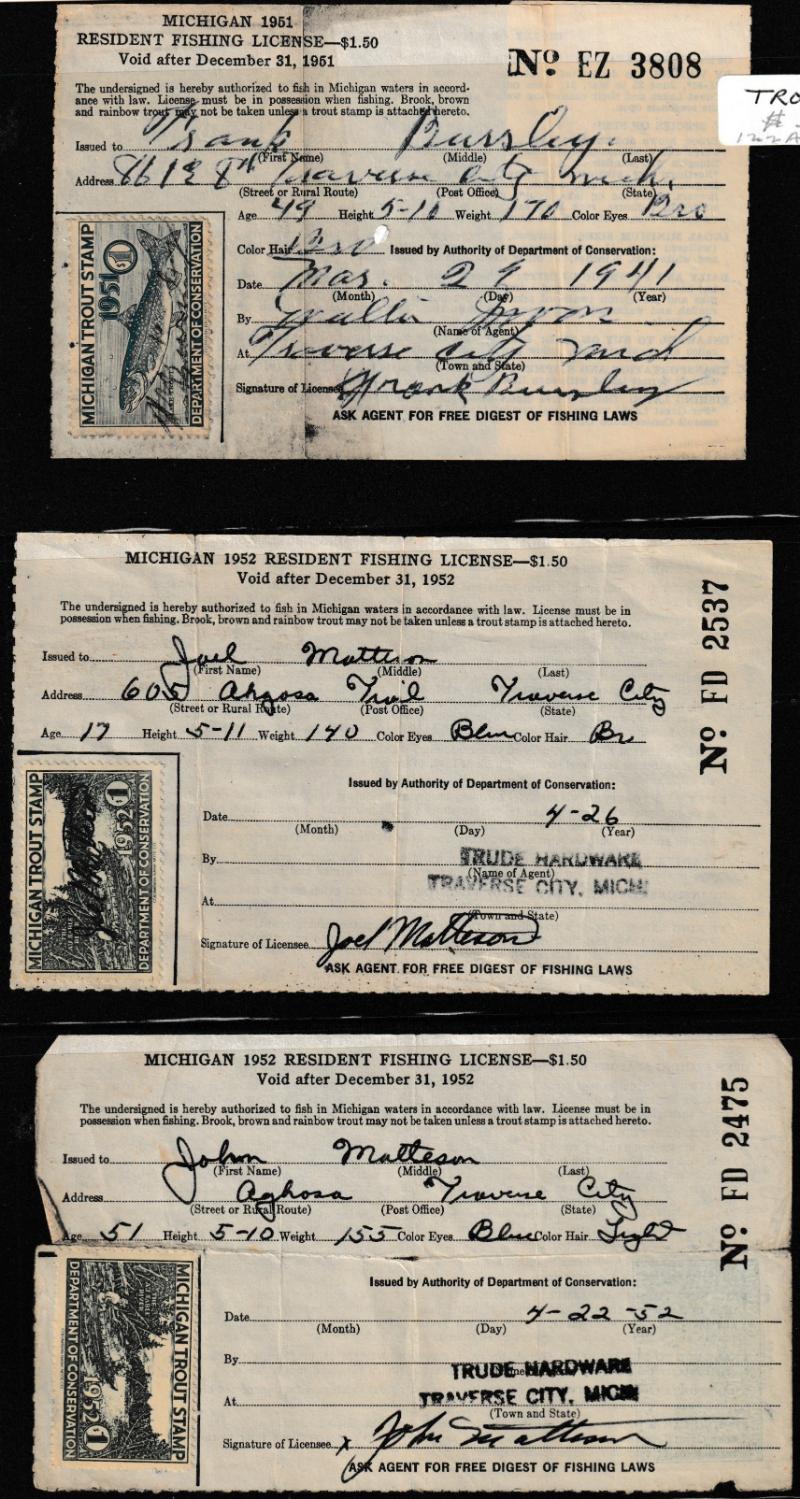 MICHIGAN 1951
RESIDENT FISHING LICENSE—$1.50
Void after December 31, 1951
No EZ 3808
TRO
The undersigned is hereby authorized to fish in Michigan waters in accord-
ance with law. License must be in possession when fishing. Brook, brown
and rainbow trout may not be taken unless a trout stamp is attached hereto.
Issued to Frank Bursley
(First Name) (Middle) (Last)
Address Traverse City Mich.
(Street or Rural Route) (Post Office) (State)
Age 49 Height 5-10 Weight 170 Color Eyes Bro
Color Hair Bro Issued by Authority of Department of Conservation:
Date Mar. 29 1941
(Month) (Day) (Year)
By
(Name of Agent)
At Traverse City Mich
(Town and State)
Signature of Licensee Frank Bursley
ASK AGENT FOR FREE DIGEST OF FISHING LAWS
MICHIGAN TROUT STAMP
1951 $1
DEPARTMENT OF CONSERVATION
MICHIGAN 1952 RESIDENT FISHING LICENSE—$1.50
Void after December 31, 1952
The undersigned is hereby authorized to fish in Michigan waters in accordance with law. License must be in
possession when fishing. Brook, brown and rainbow trout may not be taken unless a trout stamp is attached hereto.
No FD 2537
Issued to Joel Matteson
(First Name) (Middle) (Last)
Address 605 Ahgosa Trail Traverse City
(Street or Rural Route) (Post Office) (State)
Age 17 Height 5-11 Weight 140 Color Eyes Blue Color Hair Br
Issued by Authority of Department of Conservation:
Date 4-26
(Month) (Day) (Year)
By TRUDE HARDWARE
(Name of Agent)
TRAVERSE CITY, MICH.
At
(Town and State)
Signature of Licensee Joel Matteson
ASK AGENT FOR FREE DIGEST OF FISHING LAWS
MICHIGAN TROUT STAMP
Joel Matteson
1952 $1
DEPARTMENT OF CONSERVATION
MICHIGAN 1952 RESIDENT FISHING LICENSE—$1.50
Void after December 31, 1952
The undersigned is hereby authorized to fish in Michigan waters in accordance with law. License must be in
possession when fishing. Brook, brown and rainbow trout may not be taken unless a trout stamp is attached hereto.
No FD 2475
Issued to John Matteson
(First Name) (Middle) (Last)
Address Aghosa Traverse City
(Street or Rural Route) (Post Office) (State)
Age 51 Height 5-10 Weight 155 Color Eyes Blue Color Hair Light
Issued by Authority of Department of Conservation:
Date 4-22-52
(Month) (Day) (Year)
By TRUDE HARDWARE
At TRAVERSE CITY, MICH.
(Town and State)
Signature of Licensee x John Matteson
ASK AGENT FOR FREE DIGEST OF FISHING LAWS
MICHIGAN TROUT STAMP
1952 $1
DEPARTMENT OF CONSERVATION